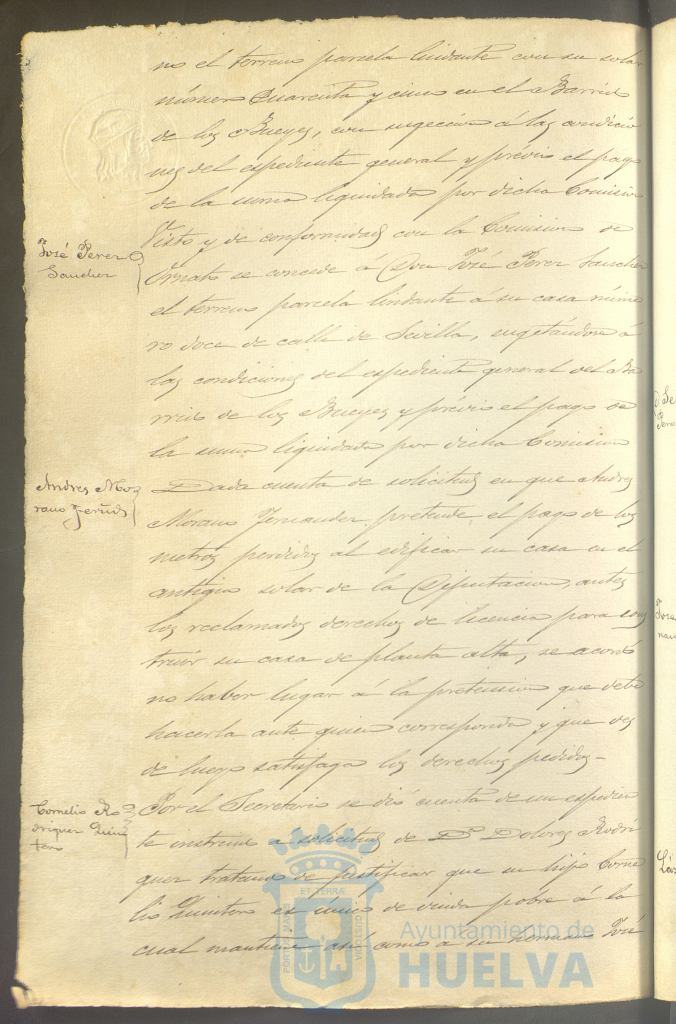 no el terreno parcela lindante con su solar
número cuarenta y cinco en el Barrio
de los Bueyes, con sugección á las condicio
nes del espediente general y prévio el pago
de la suma liquidada por dicha Comision
José Perez
Sanchez
Visto y de conformidad con la Comision de
Ornato se concede á Don José Perez Sanchez
el terreno parcela lindante á su casa núme
ro doce de calle de Sevilla, sugetándose á
las condiciones del espediente general del Ba
rrio de los Bueyes y prévio el pago de
la suma liquidada por dicha Comision
Andres Mo
rano Fernds
Dada cuenta de solicitud en que Andres
Morano Fernandez pretende el pago de los
metros perdidos al edificar su casa en el
antiguo solar de la Diputacion, antes
los reclamados derechos de licencia para cons
truir su casa de planta alta, se acordó
no haber lugar á la pretension que debe
hacerla ante quien corresponda y que des
de luego satisfaga los derechos pedidos-
Cornelio Ro
driguez Quin
tero
Por el Secretario se dió cuenta de un espedien
te instruido a solicitud de Dª Dolores Rodri
guez tratando de justificar que su hijo Corne
lio Quintero es único de viuda pobre á la
cual mantiene así como a su hermano José
PORTUS MARIS
ET TERRÆ
CUSTODIA
Ayuntamiento de
HUELVA